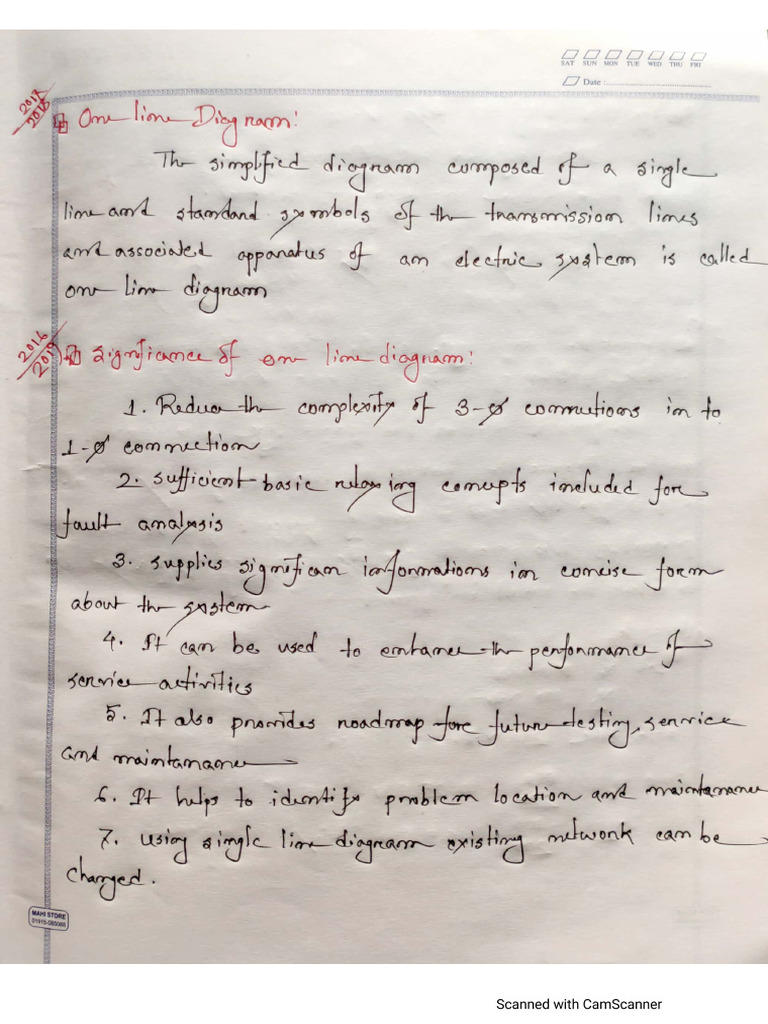 SAT SUN MON TUE WED THU FRI
Date :
2017
2018
One line Diagram:
The simplified diagram composed of a single
line and standard symbols of the transmission lines
and associated apparatus of an electric system is called
one line diagram
2016
2019
Significance of one line diagram:
1. Reduce the complexity of 3-φ connections in to
1-φ connection
2. Sufficient basic relaying concepts included for
fault analysis
3. supplies significan informations in concise form
about the system
4. It can be used to enhance the performance of
service activities
5. It also provides roadmap fore future testing, service
and maintanance
6. It helps to identify problem location and maintanance
7. using single line diagram existing network can be
changed.
MAHI STORE
01915-065066
Scanned with CamScanner